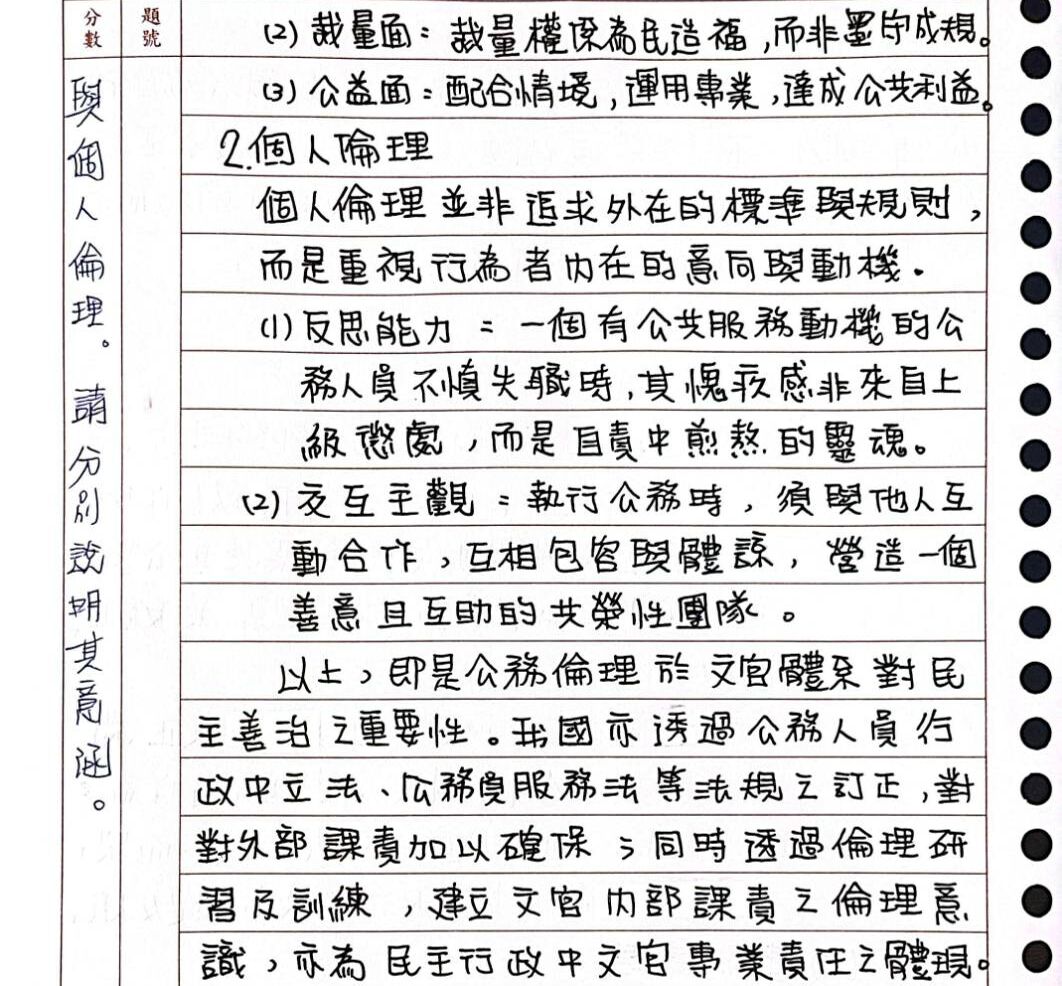 分數
題號
(2) 裁量面：裁量權係為民造福，而非墨守成規。
(3) 公益面：配合情境，運用專業，達成公共利益。
2.個人倫理
個人倫理並非追求外在的標準與規則，
而是重視行為者內在的意向與動機。
(1) 反思能力：一個有公共服務動機的公
務人員不慎失職時，其愧疚感非來自上
級懲處，而是自責中煎熬的靈魂。
(2) 交互主觀：執行公務時，須與他人互
動合作，互相包容與體諒，營造一個
善意且互助的共榮性團隊。
以上，即是公務倫理於文官體系對民
主善治之重要性。我國亦透過公務人員行
政中立法、公務員服務法等法規之訂正，對
對外部課責加以確保；同時透過倫理研
習及訓練，建立文官內部課責之倫理意
識，亦為民主行政中文官專業責任之體現。
與個人倫理。請分別說明其意涵。